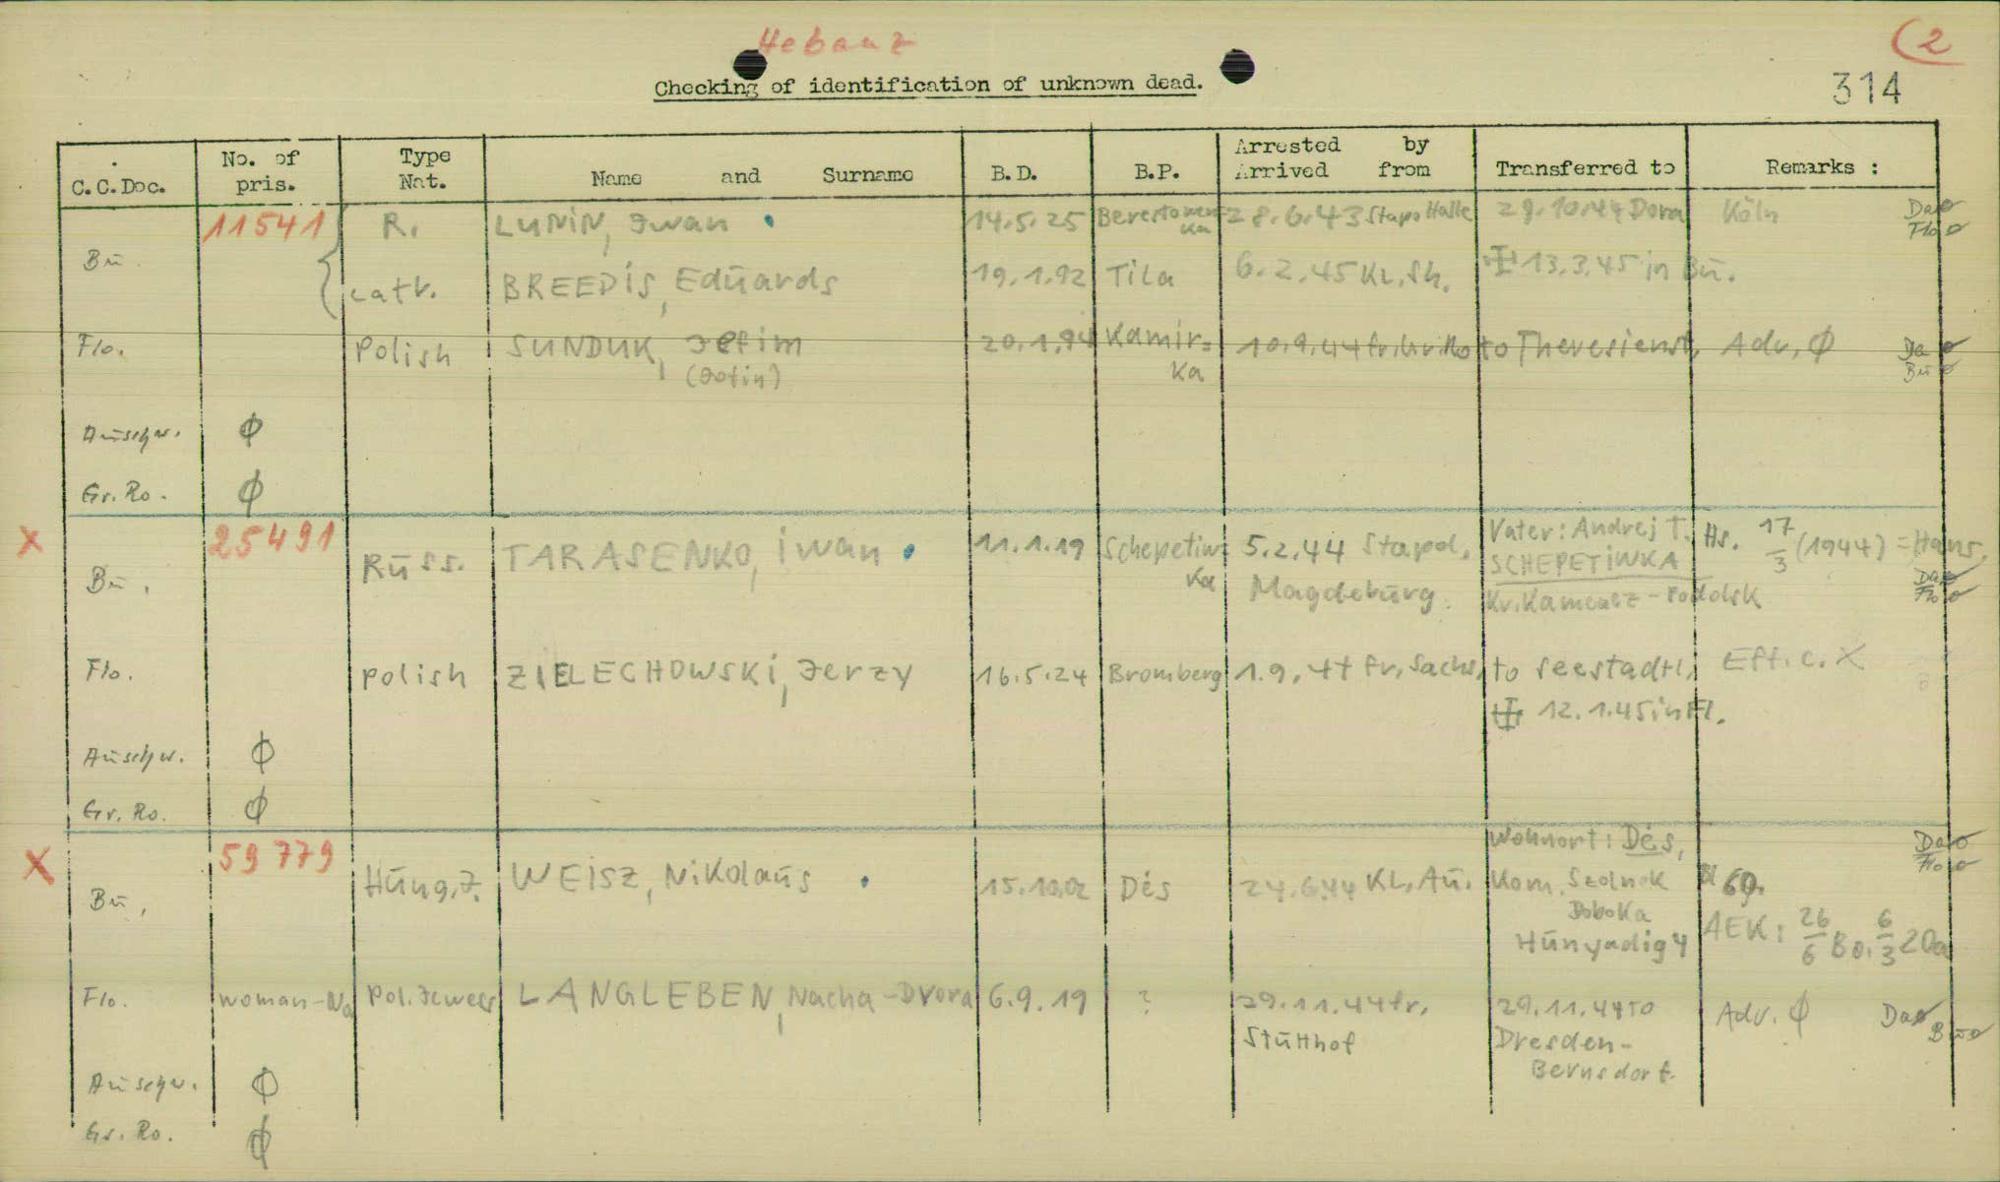 Hebanz
(2
Checking of identification of unknown dead.
314
C.C.Doc. No. of pris. Type Nat. Name and Surname B.D. B.P. Arrested by Arrived from Transferred to Remarks :
Bu. 11541 R. LUNIN, Iwan 14.5.25 28.6.43 Stapo Halle 29.10.44 Dora Köln Da ø Flo ø
Lett. BREEDIS, Eduards 19.1.92 Tila 6.2.45 KL. Sh. 13.3.45 in Bu.
Flo. Polish SUNDUK, Jefim (Jofin) 20.1.94 Kamir=ka 10.9.44 fr. Gr. Ro to Theresienst. Adv. Ø Da ø Bu ø
Auschw. Ø
Gr. Ro. Ø
X Bu. 25491 Russ. TARASENKO, Iwan 11.1.19 Schepetiwka 5.2.44 Stapol. Magdeburg. Vater: Andrej T. SCHEPETIWKA Kr. Kamenez-Podolsk Hs. 17/3 (1944) = Hans. Da ø Flo ø
Flo. Polish ZIELECHOWSKI, Jerzy 16.5.24 Bromberg 1.9.44 fr. Sachs. to Seestadtl, 12.1.45 in Fl. Eff. c. X
Auschw. Ø
Gr. Ro. Ø
X Bu. 59779 Hung. J. WEISZ, Nikolaus 15.10.02 Dés 24.6.44 KL. Au. Wohnort: Dés, Kom. Szolnok Doboka Hunyadig 4 Bl 69. AEK: 26/6 Bo. 6/3 20a Da ø Flo ø
Flo. woman-No Pol. Jewess LANGLEBEN, Nacha-Dvora 6.9.19 ? 29.11.44 fr. Stutthof 29.11.44 to Dresden-Bernsdorf. Adv. Ø Da ø Bu ø
Auschw. Ø
Gr. Ro. Ø